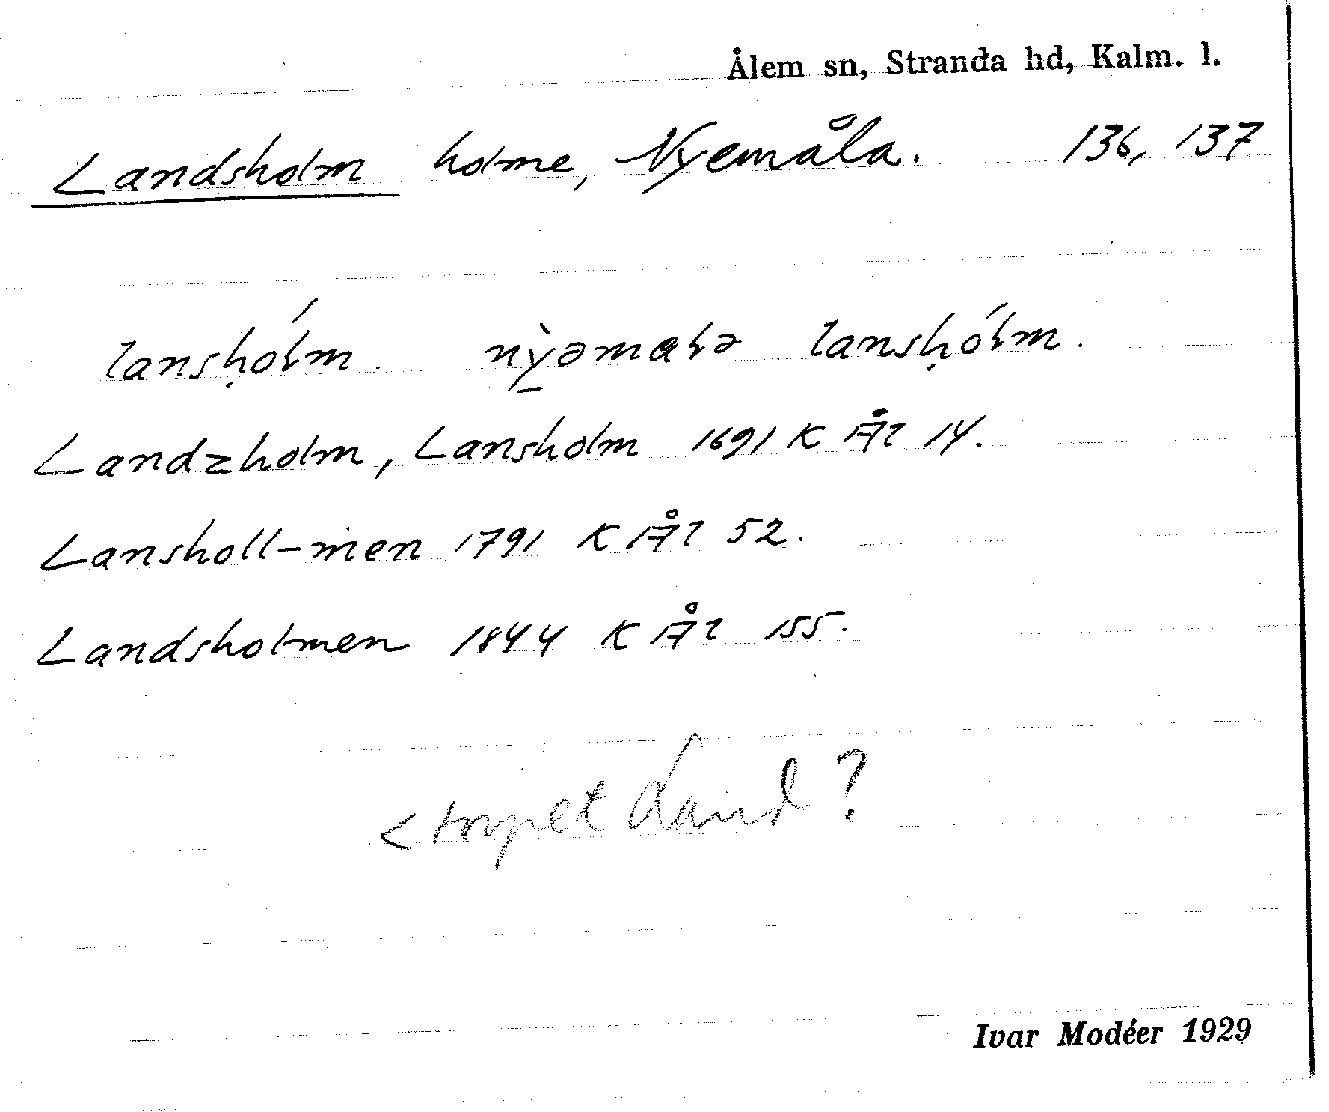 Ålem sn, Stranda hd, Kalm. l.
Landsholm holme, Nyemåla. 136, 137
lansḥólm. nỳəmalə lansḥólm.
Landzholm, Lansholm 1691 K Ål 14.
Lansholl-men 1791 K Ål 52.
Landsholmen 1844 K Ål 155.
< torpet Land?
Ivar Modéer 1929